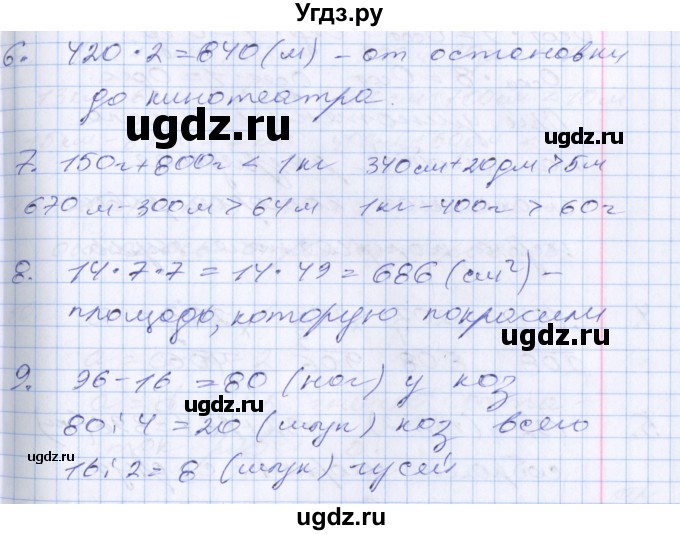 Угдз.ру
6. 420 · 2 = 840 (м) – от остановки
до кинотеатра.
ugdz.ru ugdz.ru
7. 150г + 800г < 1кг 340см + 20дм > 5м
670м – 300м > 64м 1кг – 400г > 60г
ugdz.ru
8. 14 · 7 · 7 = 14 · 49 = 686 (см²) –
площадь, которую покрасили
ugdz.ru ugdz.ru
9. 96 – 16 = 80 (ног) у коз
ugdz.ru
80 : 4 = 20 (штук) коз всего
ugdz.ru
16 : 2 = 8 (штук) гусей
ugdz.ru
ugdz.ru